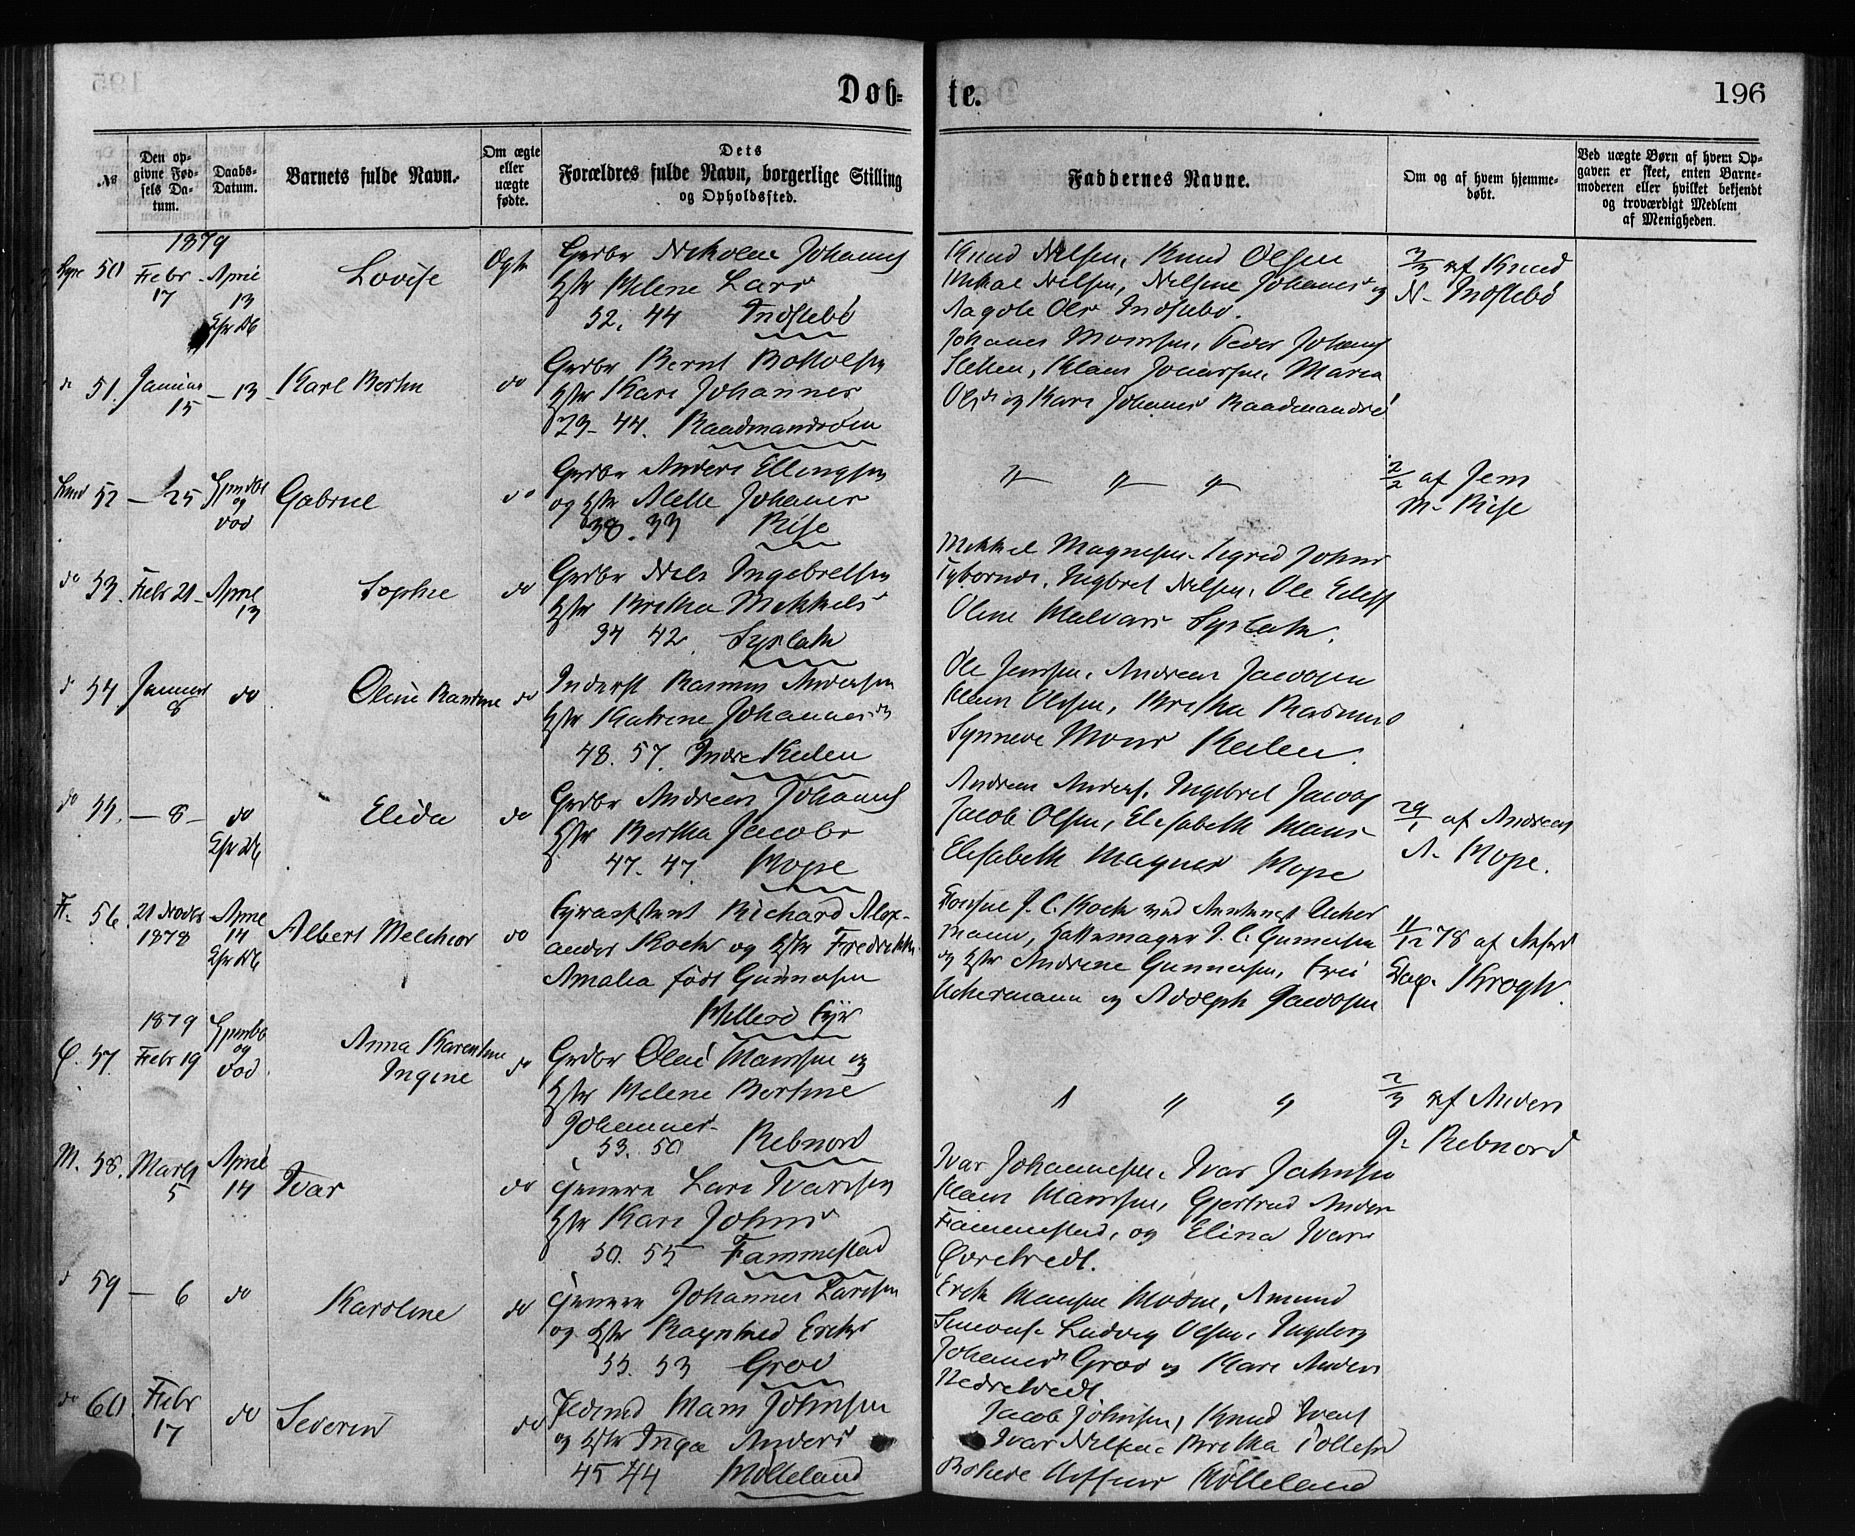 Døb=
te.
196
No
Den op-
givne Fød-
sels Da-
tum.
Daabs-
Datum.
Barnets fulde Navn.
Om ægte
eller
uægte
fødte.
Dets
Forældres fulde Navn, borgerlige Stilling
og Opholdssted.
Faddernes Navne.
Om og af hvem hjemme-
døbt.
Ved uægte Børn af hvem Op-
gaven er skeet, enten Barne-
moderen eller hvilket bekjendt
og troværdigt Medlem
af Menigheden.
1879
50 Febr 17 April 13 Lovise Ægte
Grdbr Nikolai Johanns
Hstr Helene Lars
52. 44 Indstebø
Knud Nilsen, Knud Olsen
Mikal Nilsen, Nilsine Johanes og
Aagote Ols Indstebø.
2/3 af Knud
N. Indstebø
do 51. Januar 15 — 13 Karl Bertin do
Grdbr Bernt Botolfsen
Hstr Kari Johannes
29 - 44. Raadmandsøen
Johanes Monsen, Peder Johans
Sletten, Klaus Jonassen, Maria
Ols og Kari Johanes Raadmandsø
52 — 25 Hjemdbt og død Gabriel do
Grdbr Anders Ellingsen
og Hstr Alette Johanes
38. 33 Rise
" " "
2/2 af Jens
M. Rise
do 53. Febr 21 April 13 Sophie do
Grdbr Nils Ingebretsen
Hstr Britha Mikkels
34 42. Syslak
Mikkel Magnesen, Sigrid Johns
Ingbret Nilsen, Ole
Oline Halvars Syslak.
54 Januar 8 do Oline Rasmine do
Inderst Rasmus Andersen
Hstr Katrine Johannesd
48. 57. Indre Keilen
Ole Jenssen, Andreas Jacobsen
Klaus Olsen, Britha Rasmus
Synneve Mons Keilen.
do 55. — 8 — do Elida do
Grdbr Andreas Johans
Hstr Bertha Jacobs
47. 47. Hope
Andreas Anders, Ingebret Jacobs
Jacob Olsen, Elisabeth Hans
Elisabeth Magnes Hope
29/1 af Andreas
A. Hope.
F. 56. 21 Novbr 1878 April 14 Albert Melchior do
Fyrassistent Richard Alex-
ander Koch og Hstr Fredrikke
Amalia født Gunnersen
Hellesø Fyr
Konsul J. C. Koch ved Assistent Ucher
mann, Hattemager J. C. Gunnersen
og Hstr Andrine Gunnersen, Evi
Uchermann og Adolph Jacobsen
11/12 78 af
Krogh.
1879
57. Febr 19 Hjemdbt og død Anna Karentine Ingine do
Grdbr Olai Hansen og
Hstr Helene Bertine
Johannes
53. 50 Rebnord
" " "
2/3 af Anders
J. Rebnord
M. 58. Marts 5 April 14 Ivar do
Lars Ivarsen
Hstr Kari Johns
50. 55 Fammestad
Ivar Johannesen, Ivar Johnsen
Klaus Hansen, Gjertrud Anders
Fammestad, og Elina Ivars
Øvretvedt.
59 — 6 do Karoline do
Johannes Larssen
og Hstr Ragnhild Eriks
55. 53 Grov
Erik Hansen Moldøen, Amund
Simons. Ludvig Olsen, Ingeborg
Johanes Grov og Kari Anders
Nedretvedt
do 60. Febr 17 do Severin do
Hans Johnsen
og Hstr Inga Anders
45 44 Mølleland
Jacob Johnsen, Knud Ivars
Ivar Nilsen, Britha Tollefs
Mølleland